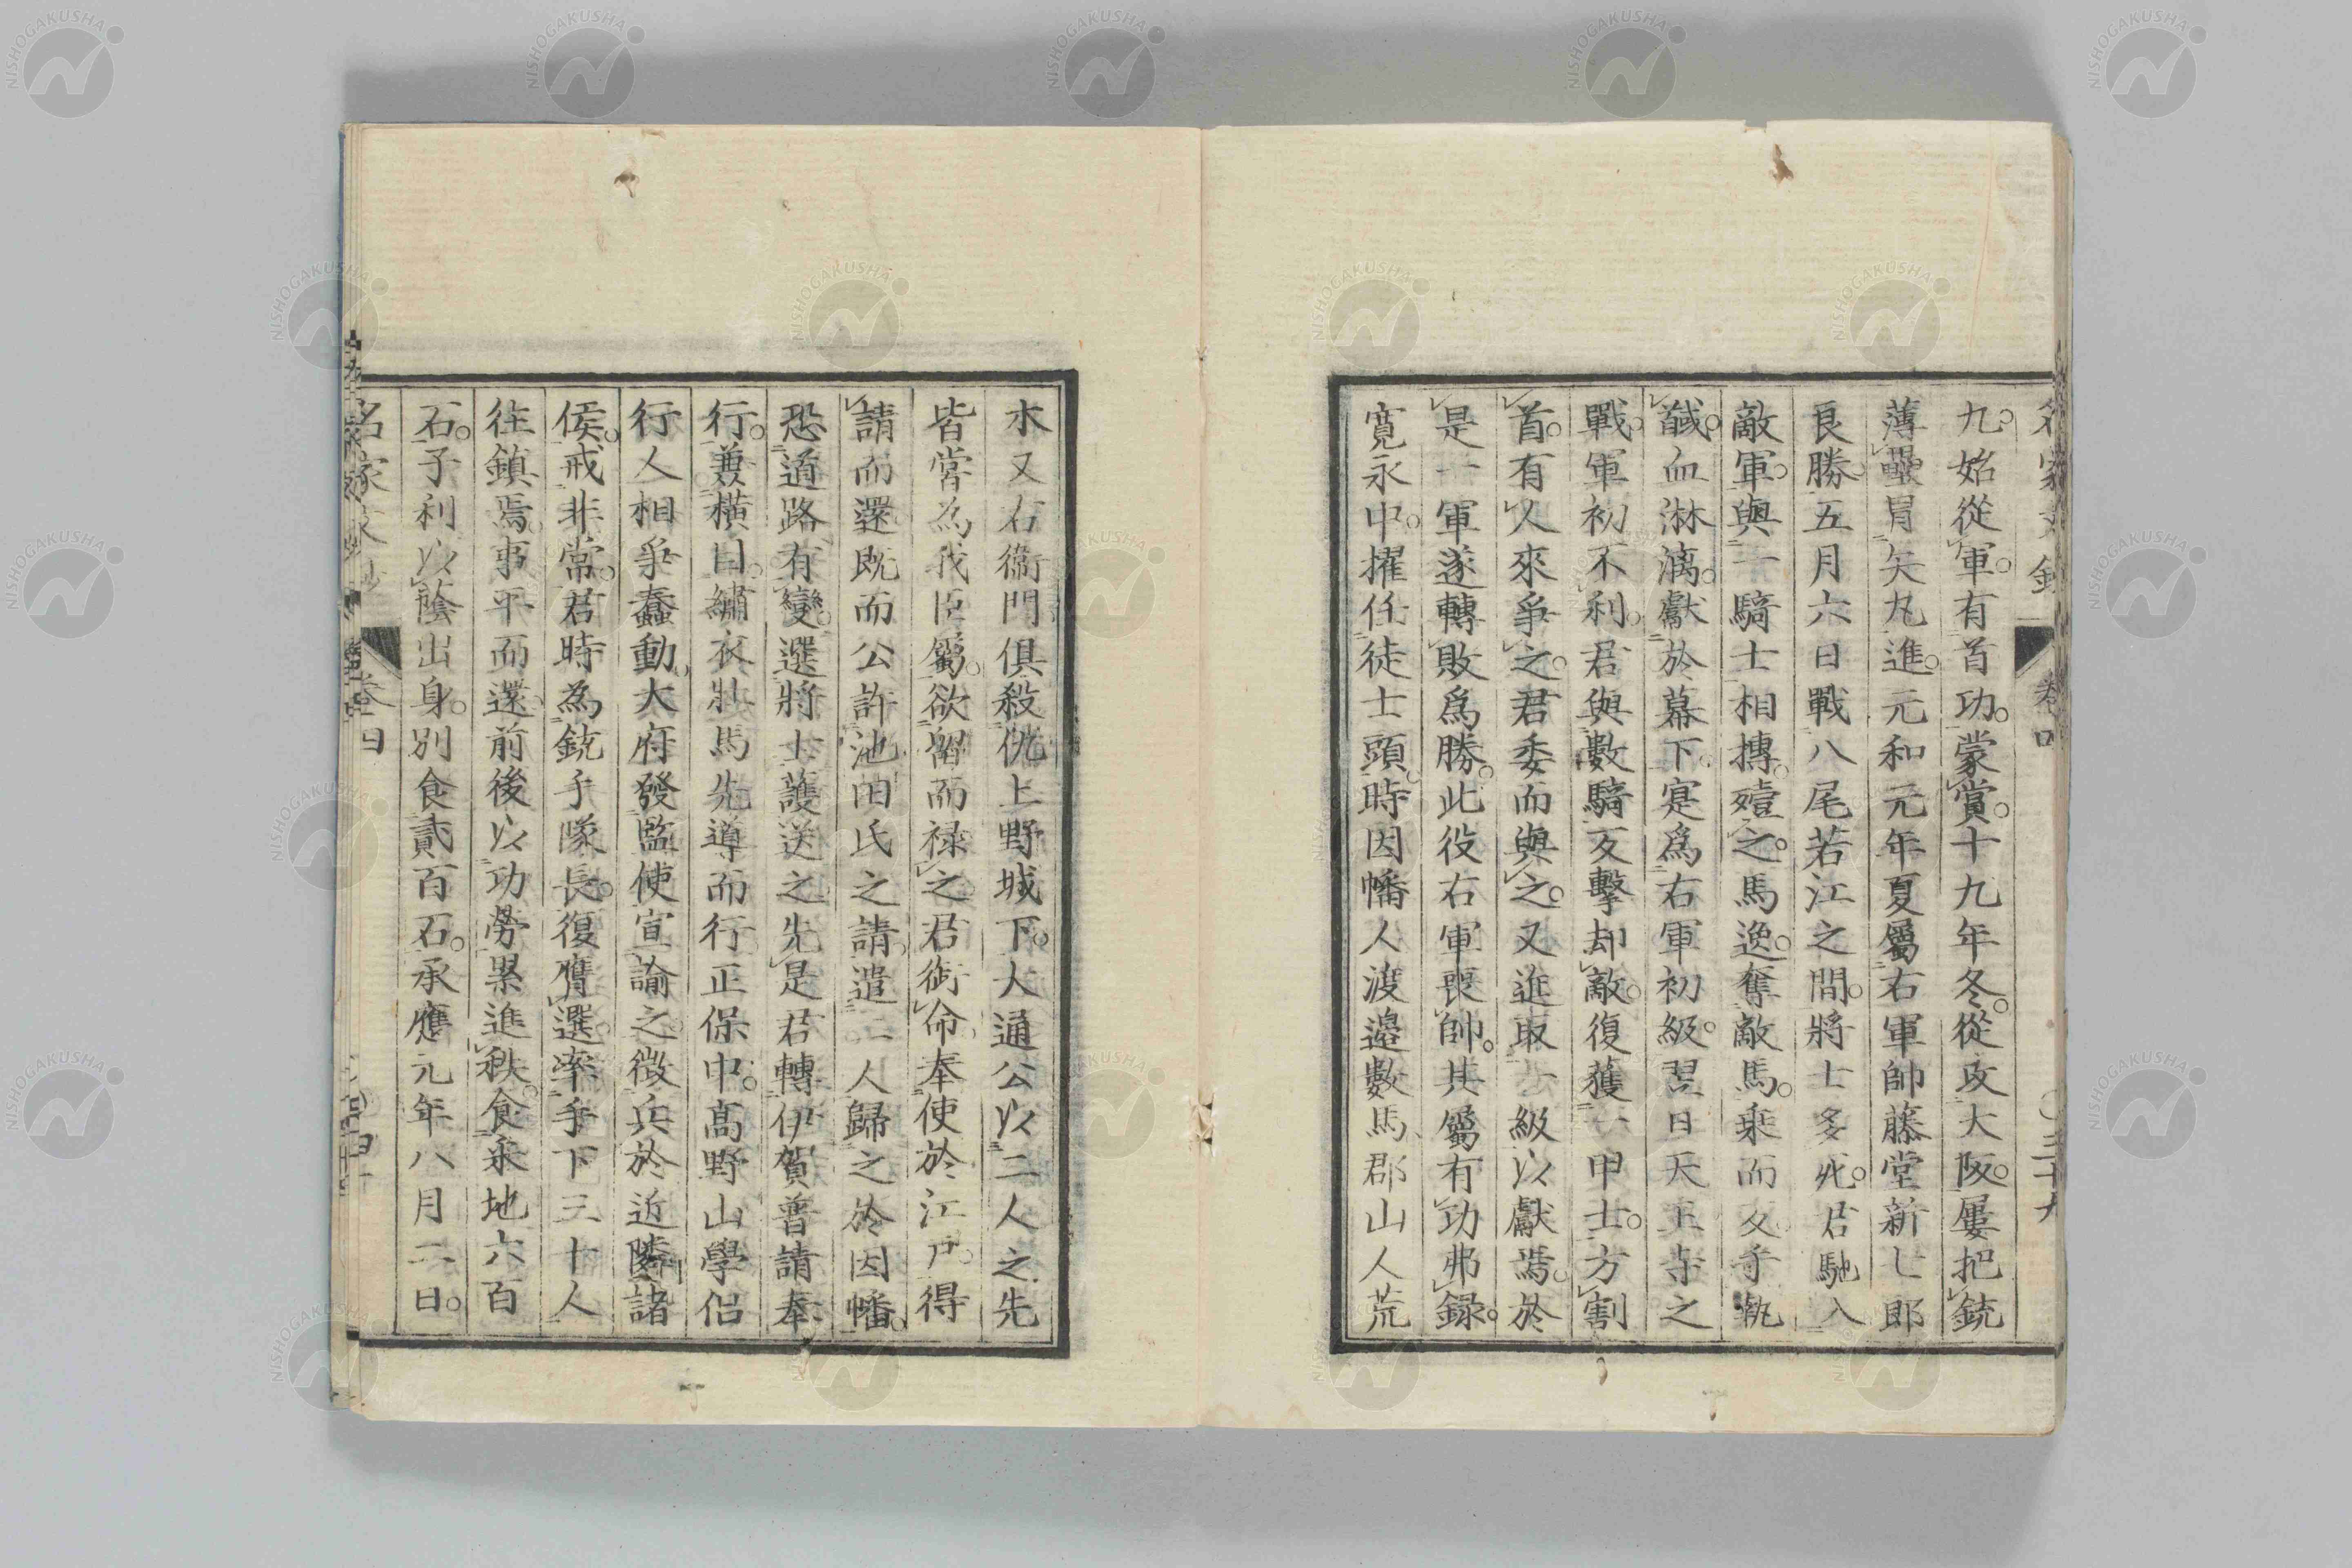 九。始從軍。有首功。蒙賞。十九年冬。從攻大阪。屢把銃
薄壘。冒矢丸進。元和元年夏。屬右軍帥藤堂新七郎
良勝。五月六日戰八尾若江之間。將士多死。君馳入
敵軍。與一騎士相搏。殪之。馬逸。奪敵馬。乗而又手執
馘。血淋漓。獻於幕下。寔爲右軍初級。翌日天王寺之
戰。軍初不利。君與數騎反擊却敵。復獲一甲士。方割
首。有人來爭之。君委而與之。又進取一級以獻焉。於
是一軍遂轉敗爲勝。此役右軍喪帥。其屬有功弗録。
寛永中。擢任徒士頭。時因幡人渡邉數馬。郡山人荒
木又右衛門俱殺仇上野城下。大通公以二人之先
皆嘗為我臣屬。欲留而禄之。君銜命奉使於江戸。得
請而還。既而公許池田氏之請。遣二人歸之於因幡。
恐道路有變。選將士護送之。先是君轉伊賀普請奉
行。兼横目。繡衣壯馬先導而行。正保中。髙野山學侶
行人相爭蠢動。大府發監使宣諭之。徴兵於近隣諸
侯。戒非常。君時為銃手隊長。復膺選。率手下三十人
往鎮焉。事平而還。前後以功勞累進秩。食采地六百
石。子利以蔭出身。別食貳百石。承應元年八月二日。
卷四